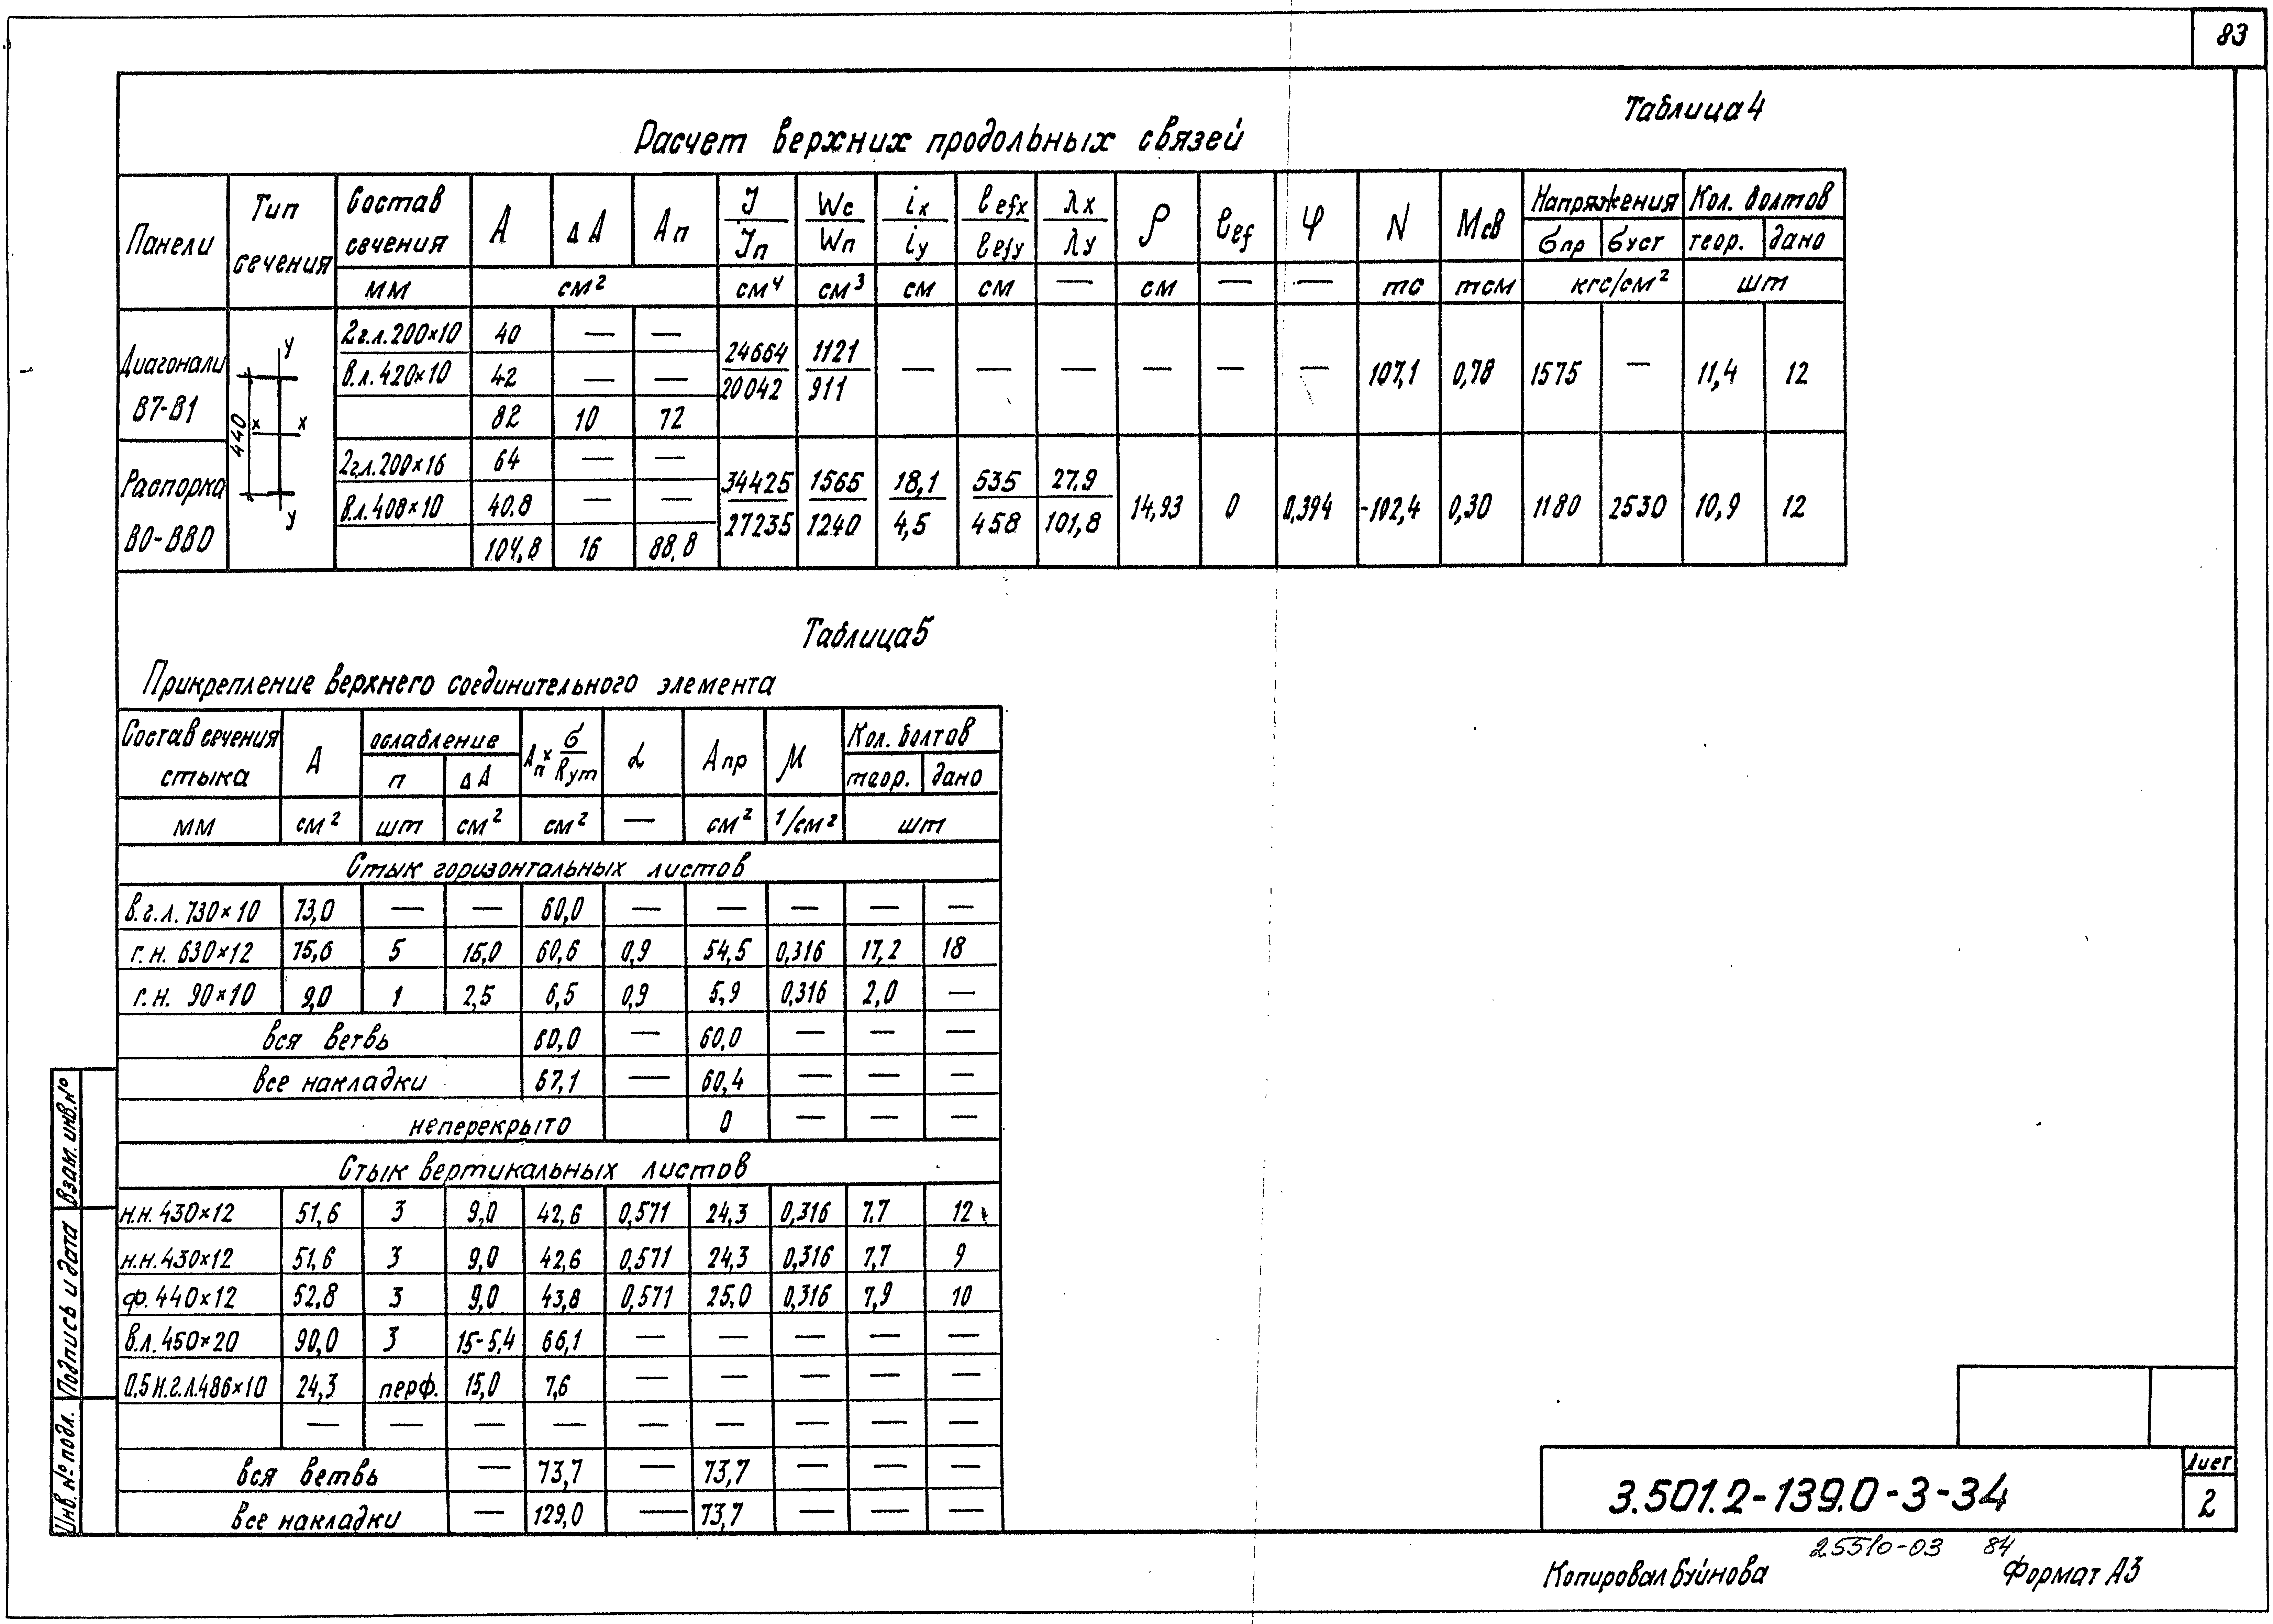 83
Таблица 4
Расчет верхних продольных связей
Панели | Тип сечения | Состав сечения | A | ΔA | Aп | J/Jп | Wc/Wп | ix/iy | ℓefx/ℓefy | λx/λy | ρ | eef | φ | N | Mсв | Напряжения | Кол. болтов
σпр | σуст | теор. | дано
мм | см² | см⁴ | см³ | см | см | — | см | — | — | тс | тсм | кгс/см² | шт
Диагонали В7-В1
2г.л.200×10 | 40 | — | —
в.л.420×10 | 42 | — | —
82 | 10 | 72
24664/20042 | 1121/911 | — | — | — | — | — | — | 107,1 | 0,78 | 1575 | — | 11,4 | 12
у
х х
у
440
Распорка В0-ВВ0
2г.л.200×16 | 64 | — | —
в.л.408×10 | 40.8 | — | —
104,8 | 16 | 88,8
34425/27235 | 1565/1240 | 18,1/4,5 | 535/458 | 27.9/101,8 | 14,93 | 0 | 0,394 | -102,4 | 0,30 | 1180 | 2530 | 10,9 | 12
Таблица 5
Прикрепление верхнего соединительного элемента
Состав сечения стыка | A | ослабление | Aп × σ/Ryт | α | Aпр | μ | Кол. болтов
п | ΔA | теор. | дано
мм | см² | шт | см² | см² | — | см² | 1/см² | шт
Стык горизонтальных листов
в.г.л.730×10 | 73,0 | — | — | 60,0 | — | — | — | — | —
г.н. 630×12 | 75,6 | 5 | 15,0 | 60,6 | 0,9 | 54,5 | 0,316 | 17,2 | 18
г.н. 90×10 | 9,0 | 1 | 2,5 | 6,5 | 0,9 | 5,9 | 0,316 | 2,0 | —
вся ветвь | 60,0 | — | 60,0 | — | — | —
все накладки | 67,1 | — | 60,4 | — | — | —
неперекрыто | 0 | — | — | —
Стык вертикальных листов
н.н.430×12 | 51,6 | 3 | 9,0 | 42,6 | 0,571 | 24,3 | 0,316 | 7,7 | 12
н.н.430×12 | 51,6 | 3 | 9,0 | 42,6 | 0,571 | 24,3 | 0,316 | 7,7 | 9
ф.440×12 | 52,8 | 3 | 9,0 | 43,8 | 0,571 | 25,0 | 0,316 | 7,9 | 10
в.л.450×20 | 90,0 | 3 | 15-5,4 | 66,1 | — | — | — | — | —
0,5н.г.л.486×10 | 24,3 | перф. | 15,0 | 7,6 | — | — | — | — | —
— | — | — | — | — | — | — | — | —
вся ветвь | — | 73,7 | — | 73,7 | — | — | —
все накладки | — | 129,0 | — | 73,7 | — | — | —
Взам. инв.№
Подпись и дата
Инв.№ подл.
3.501.2-139.0-3-34
Лист
2
25510-03 84
Копировал Буйнова Формат А3